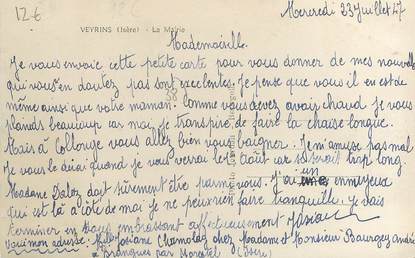 12€
Mercredi 23 Juillet 47
VEYRINS (Isère) - La Mairie
Mademoiselle.
Je vous envoie cette petite carte pour vous donner de mes nouvelles
qui vous en doutez pas sont excelentes. Je pense que vous il en est de
même ainsi que votre maman. Comme vous devez avoir chaud je vous
plainds beaucoup car moi, je transpire de faire la chaise longue.
Mais à Collonge vous allez bien vous baigner. Je m'amuse pas mal
Je vous le dirai quand je vous verrai le août car se serait trop long.
Madame Daloz doit sûrement être parmi vous. J'ai un ennuyeux
qui est là a côté de moi je ne peux rien faire tranquille. Je vais
terminer en vous embrassant affectueusement Josiane
Voici mon adresse: Melle Josiane Chamolay chez Madame et Monsieur Bourgey André
à Brangues par Morestel (Isère)